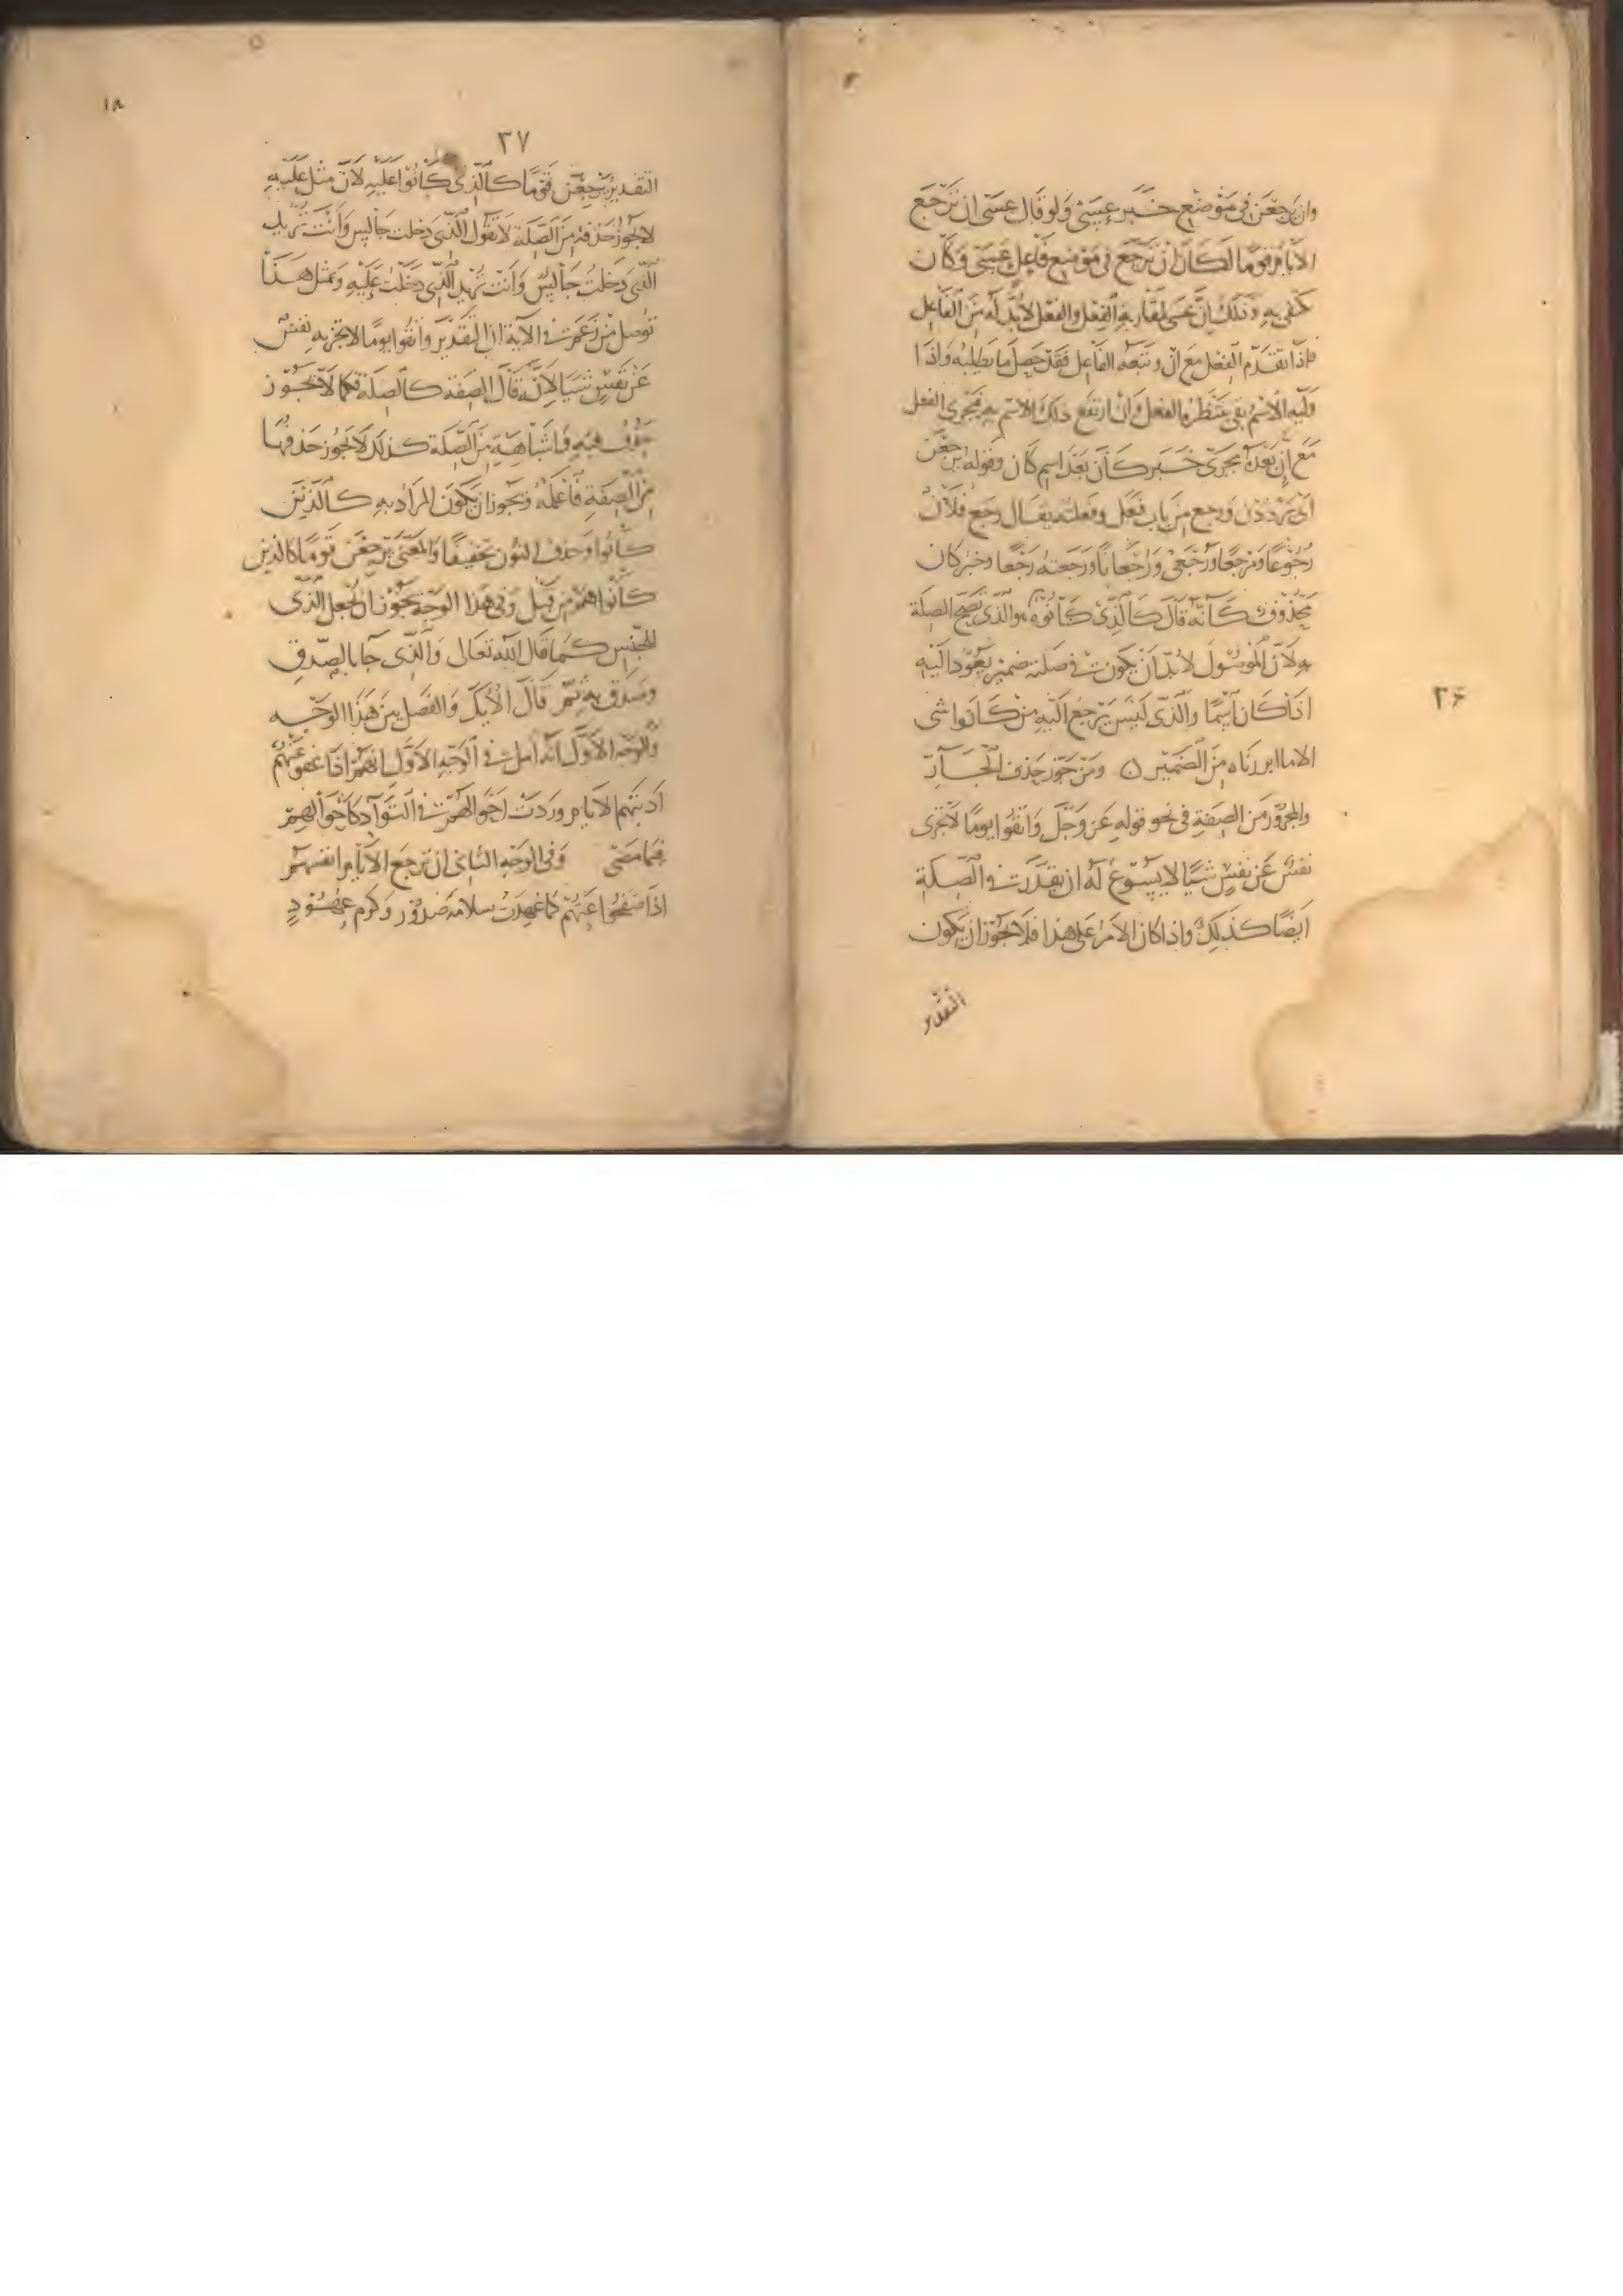 وان يرجعن فى موضع خبر عسى ولو قال عسى ان ترجع
الايام قوما لكان ان ترجع فى موضع فاعل عسى وكان
يكتفى به وذلك ان عسى لمقاربة الفعل والفعل لا بد له من الفاعل
فاذا تقدم الفعل مع ان وتبعه الفاعل فقد حصل ما يطلبه واذا
وليه الاسم بقى ينتظر الفعل وان ارتفع ذلك الاسم به فيجرى الفعل
مع ان بعده مجرى خبر كان بعد اسم كان وقوله يرجعن
اى يرددن ورجع من باب فعل وفعلته يقال رجع فلان
رجوعا ومرجعا ورجعى ورجعانا ورجعته رجعا وخبر كان
محذوف كانه قال كالذى كانوه والذى تصح الصلة
به لان الموصول لا بد ان يكون فى صلته ضمير يعود اليه
اذا كان اسما والذى ليس يرجع اليه من كانوا شى
الا ما ابرزناه من الضمير ومن جوز حذف الجار
والمجرور من الصفة فى نحو قوله عز وجل واتقوا يوما لا تجزى
نفس عن نفس شيئا لا يسوغ له ان يقدر فى الصلة
ايضا كذلك واذا كان الامر على هذا فلا يجوز ان يكون
التقدير
٢۶
١٨
٢٧
التقدير يرجعن قوما كالذى كانوا عليه لان مثل عليه
لا يجوز حذفه من الصلة لا تقول الذى دخلت جالس وانت تريد
الذى دخلت جالس وانت تريد الذى دخلت عليه ومثل هذا
توصل من زعم فى الاية ان التقدير واتقوا يوما لا تجزيه نفس
عن نفس شيئا لانه قال الصفة كالصلة فكما لا يجوز
حذف فيه فاشباهه من الصلة كذلك لا يجوز حذفها
من الصفة فاعلمه ويجوز ان يكون المراد به كالذين
كانوا وحذف النون تخفيفا والمعنى يرجعن قوما كالذين
كانوا هم من قبل وفى هذا الوجه يجوز ان تجعل الذى
للجنس كما قال الله تعالى والذى جا بالصدق
وصدق به ثم قال اولئك والفصل بين هذا الوجه
والوجه الاول انه امل فى الوجه الاول انهم اذا عفوا عنهم
ادبتهم الايام وردت احوالهم فى التواد كاحوالهم
فيما مضى وفى الوجه الثانى ان ترجع الايام انفسهم
اذا صفحوا عنهم كما عهدت سلامة صدور وكرم عهود